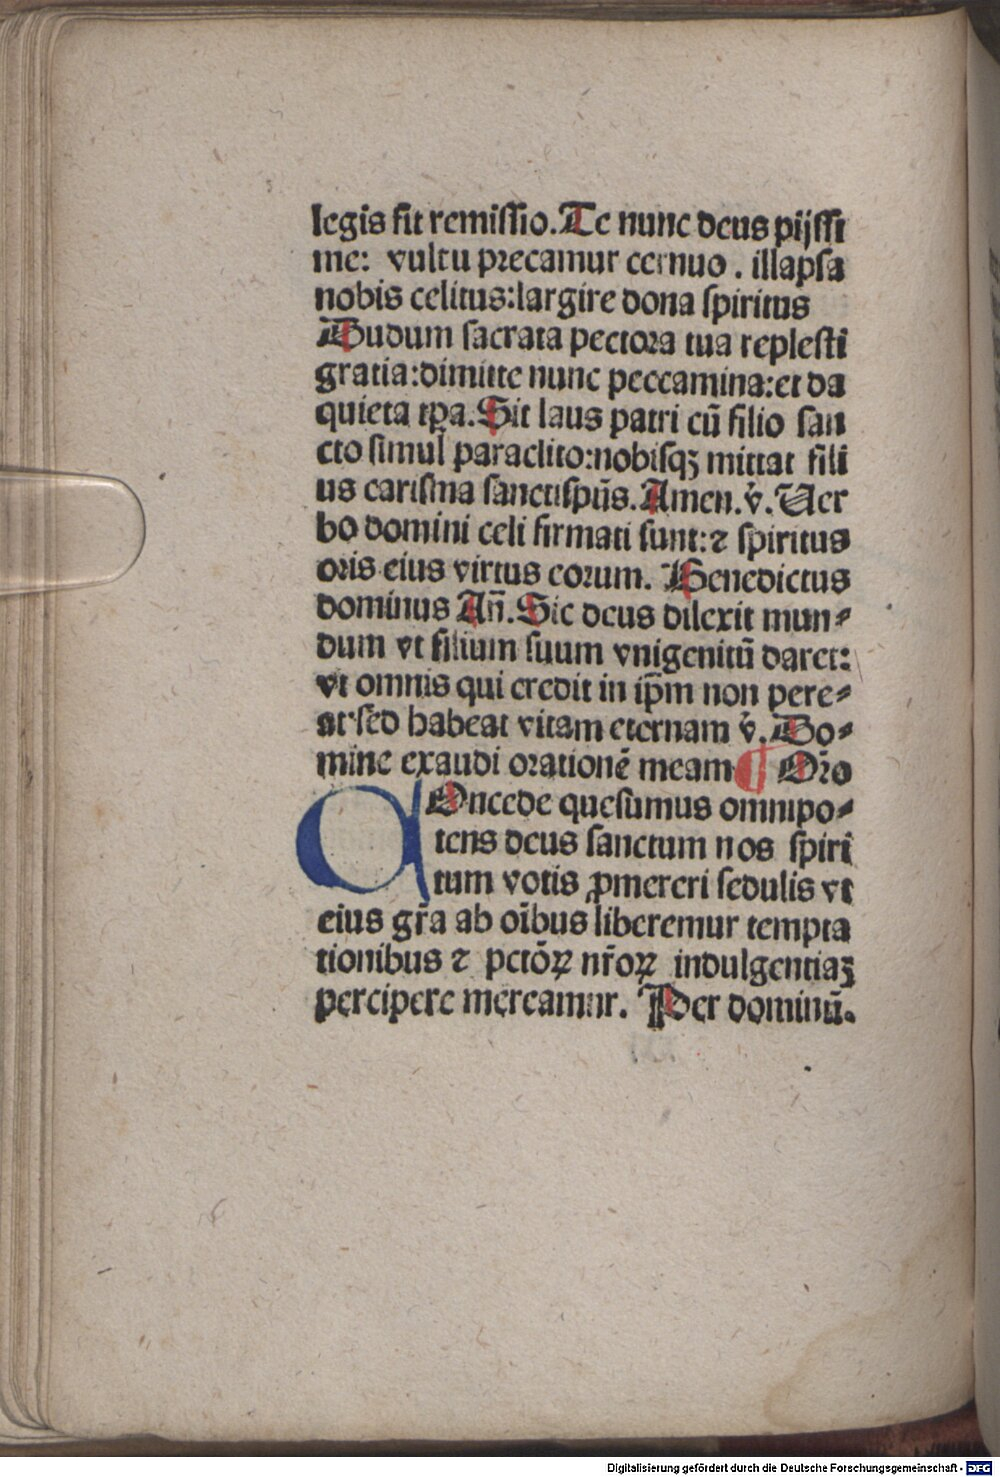 legis fit remissio. Te nunc deus pijssi
me: vultu precamur cernuo. illapsa
nobis celitus:largire dona spiritus
Dudum sacrata pectora tua replesti
gratia:dimitte nunc peccamina:et da
quieta tp̄a. Sit laus patri cū filio san
cto simul paraclito:nobisqꝫ mittat fili
us carisma sanctispūs. Amen. v̄. Uer
bo domini celi firmati sunt:⁊ spiritus
oris eius virtus eorum. Benedictus
dominus An̄. Sic deus dilexit mun⸗
dum vt filium suum vnigenitū daret:
vt omnis qui credit in ip̄m non pere⸗
at sed habeat vitam eternam v̄. Do⸗
mine exaudi orationē meam ¶ Or̄o
COncede quesumus omnipo⸗
tens deus sanctum nos spiri
tum votis ꝓmereri sedulis vt
eius gr̄a ab oībus liberemur tempta
tionibus ⁊ pctōꝝ nr̄oꝝ indulgentiaꝫ
percipere mereamur. Per dominū.
Digitalisierung gefördert durch die Deutsche Forschungsgemeinschaft - DFG